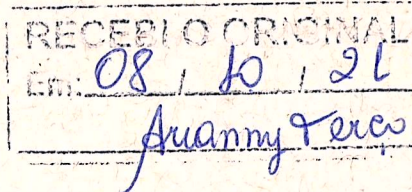 RECEBI O ORIGINAL
Em: 08 / 10 / 21
Arianny Terço